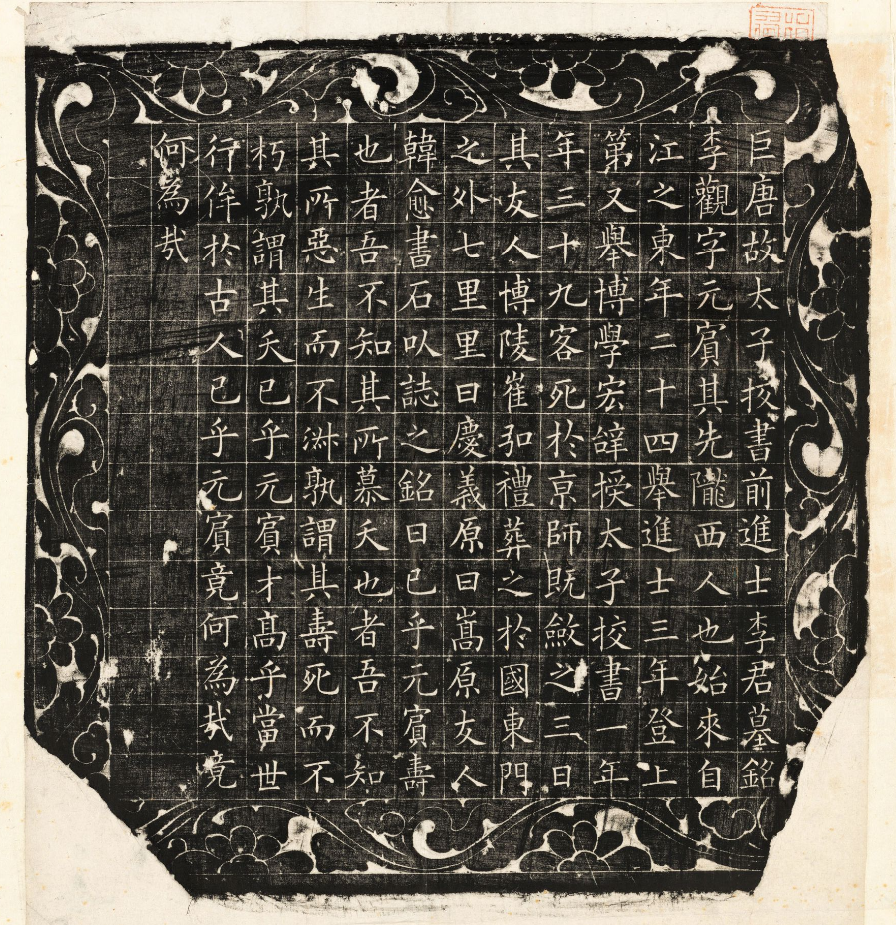 巨唐故太子挍書前進士李君墓銘
李觀字元賔其先隴西人也始來自
江之東年二十四舉進士三年登上
第又舉博學宏辝授太子挍書一年
年三十九客死於京師既斂之三日
其友人博陵崔弘禮葬之於國東門
之外七里里曰慶義原曰嵩原友人
韓愈書石以誌之銘曰已乎元賔壽
也者吾不知其所慕夭也者吾不知
其所惡生而不淑孰謂其壽死而不
朽孰謂其夭已乎元賔才高乎當世
行侔於古人已乎元賔竟何為哉竟
何為哉